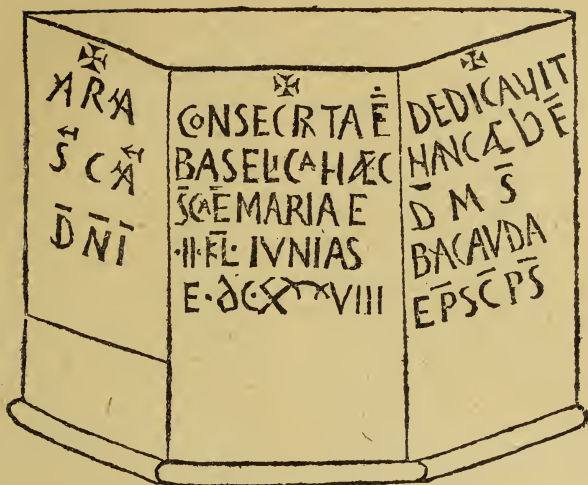 ✠
ARA
S̄CĀ
D̄N̄Ī
✠
CONSECRTA Ē
BASELICA HÆC
S̄CAĒ MARIAE
·II·K̄L̄· IVNIAS
E·∂C·XXXVIII
✠
DEDICAVIT
HANC ÆDĒ
D̄ M S̄
BACAVDA
EP̄SC̄PS̄